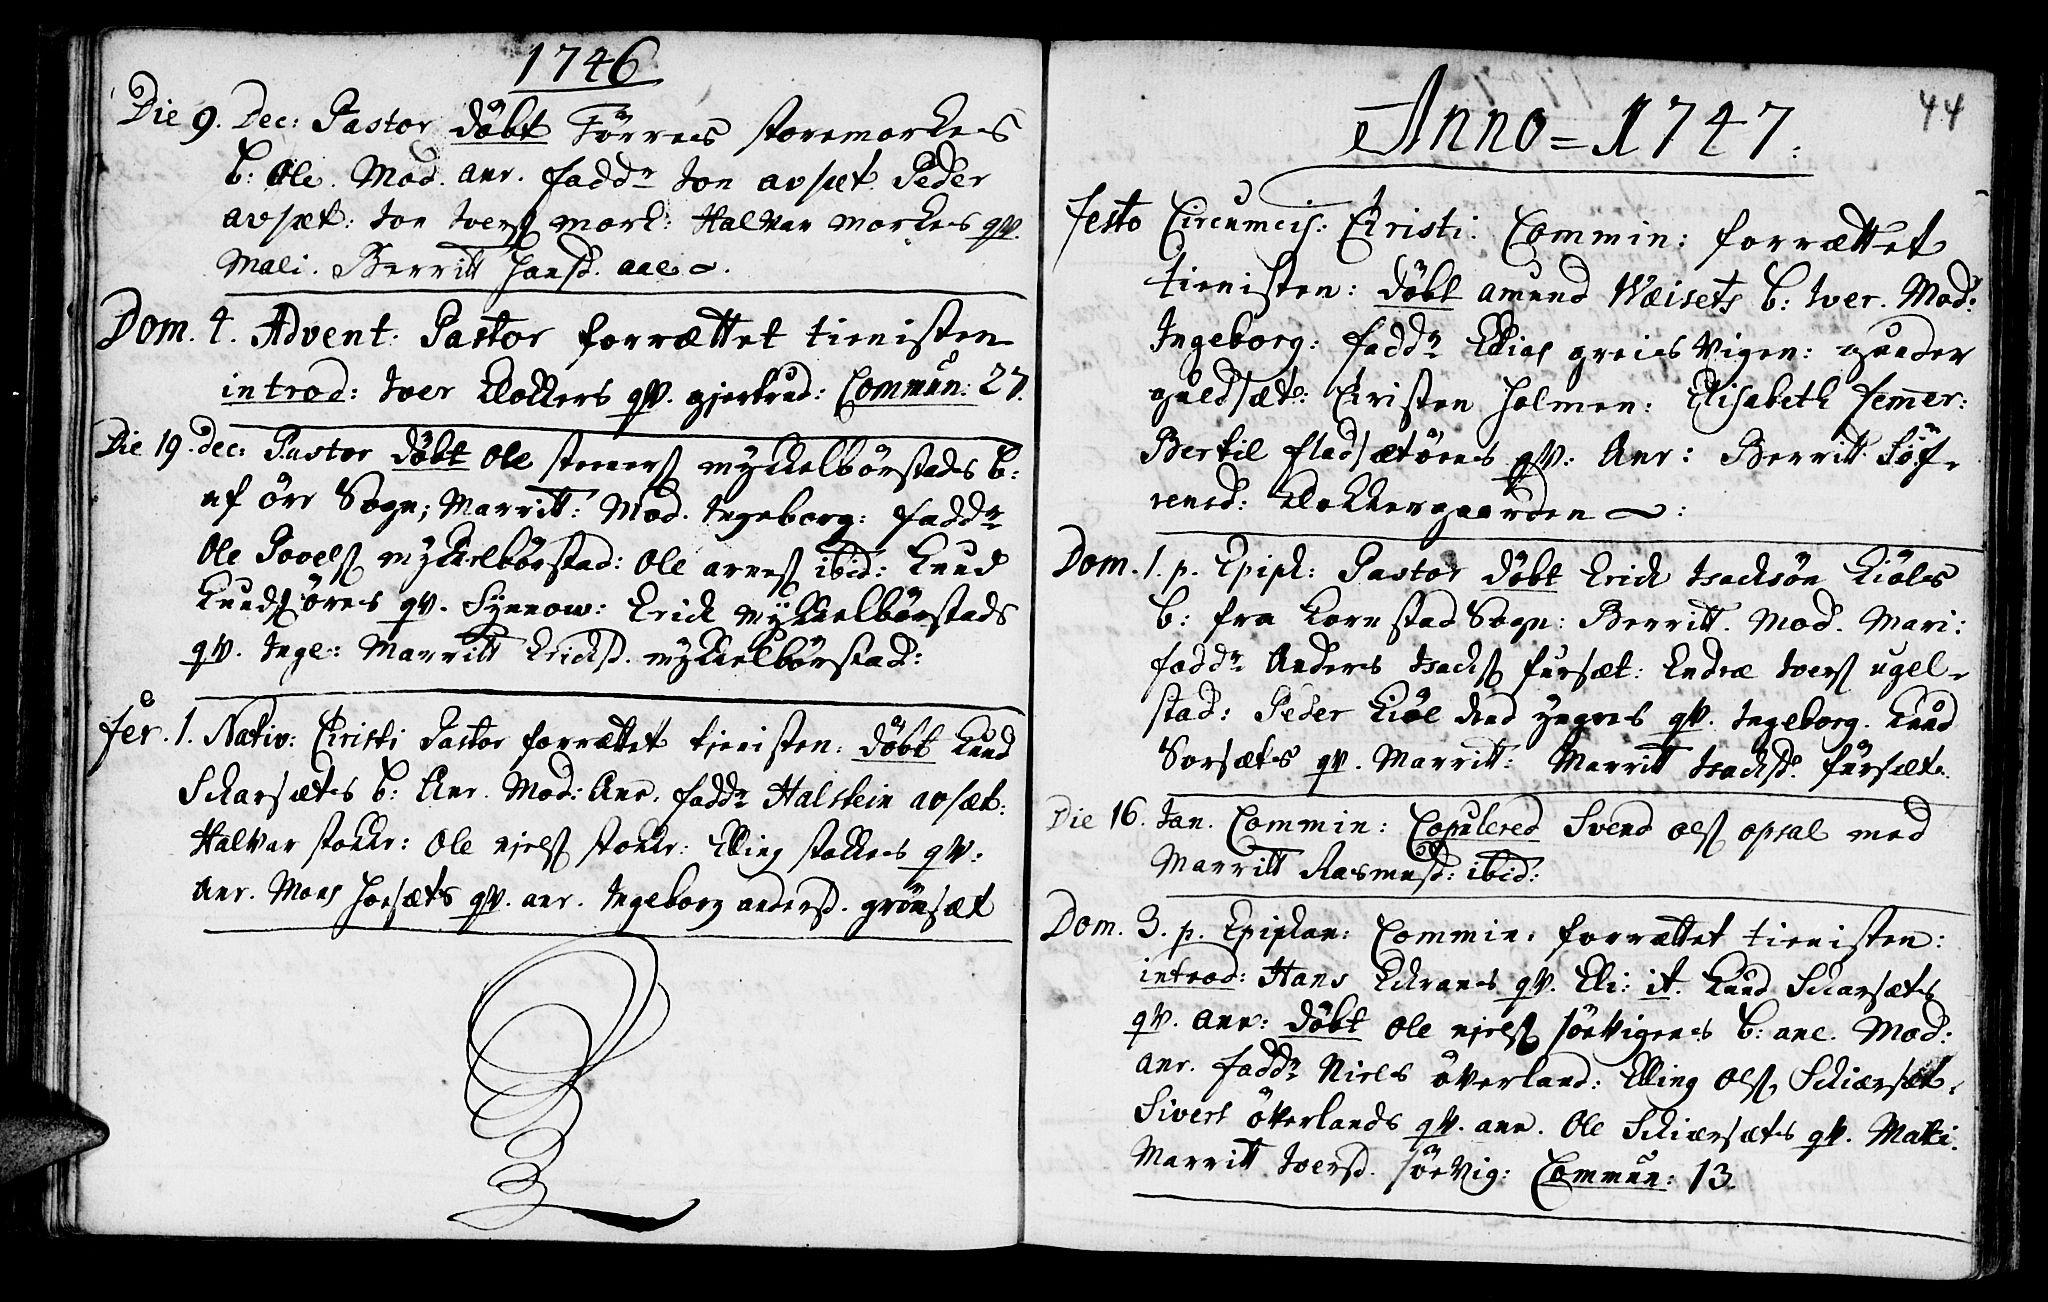 1746
Die 9. Dec: Pastor döbt Törres storemorkes
b: Ole. Mod. anr. fadd: Jon avsæt. Peder
avsæt: Jon Iverß mork: Halvar morkes qv.
Mali. Berritt Jonsd. aae.
Dom. 4. Advent: Pastor forrættet tienisten
introd: Iver Klokkers qv. gjertrud: Commun: 27.
Die 19. dec: Pastor döbt Ole mykkelbörstads b:
af örr Sogn; Marritt: Mod. Ingeborg: fadd:
Ole Povelß mykkelbörstad: Ole arneß ibid: Knud
Knudß öres qv. Synnow: Erick mykkelbörstads
qv. Inge: Marritt Ericksd. mykkelbörstad:
fer. 1. Nativ: Christi Pastor forrættet tjenisten: döbt Knud
Skarsæts b: Anr. Mod: Anr. fadd: Halstein avsæt:
Halvar stokke: Ole nielß stokke: Elling stokkes qv.
Anr. Mons Hoesæts qv. anr. Ingeborg andersd. grönsæt
44
Anno = 1747:
festo Circumcis: Christi: Commin: forrættet
tienisten: döbt amund Wæisets b: Iver. Mod:
Ingeborg: fadd: Elias greisvigen: gunder
guldsæt: Christen Holmen: Elisabeth femer:
Bertil fladsætöres qv: Anr: Berritt Söf-
rensd: Klokkergaarden:
Dom. 1. p. Epiph: Pastor döbt Erick Isacksön Kiöls
b: fra Kornstad Sogn: Berritt. Mod. Mari:
fadd: Anders Isackß fursæt: Endræ Iverß ugel-
stad: Peder Kiöl den yngres qv. Ingeborg. Knud
Sorsæts qv. Marritt: Marritt Isacksd. fursæt.
Die 16. Jan. Commin: Copulered Svend olß opsal med
Marritt Rasmusd: ibid:
Dom. 3. p. Epiphan: Commin: forrættet tienisten:
introd: Hans Ekranes qv. Eli: it. Knud Skarsæts
qv. ane: döbt Ole nielß sörvigenes b: ane. Mod:
anr. fadd: Niels överland: Elling Olß Skiærsæt.
Sivert överlands qv. ane. Ole Skiærsæts qv. Mari.
Marritt Iversd. sörvig: Commun: 13.